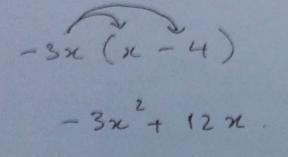 -3x (x - 4)
-3x² + 12x.